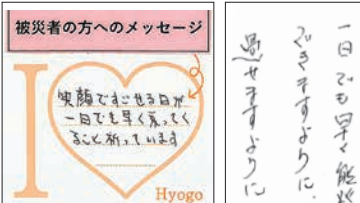 被災者の方へのメッセージ
I
笑顔ですごせる日が
一日でも早く戻ってく
ること祈っています
Hyogo
一日でも早く
できますように.
過せますように